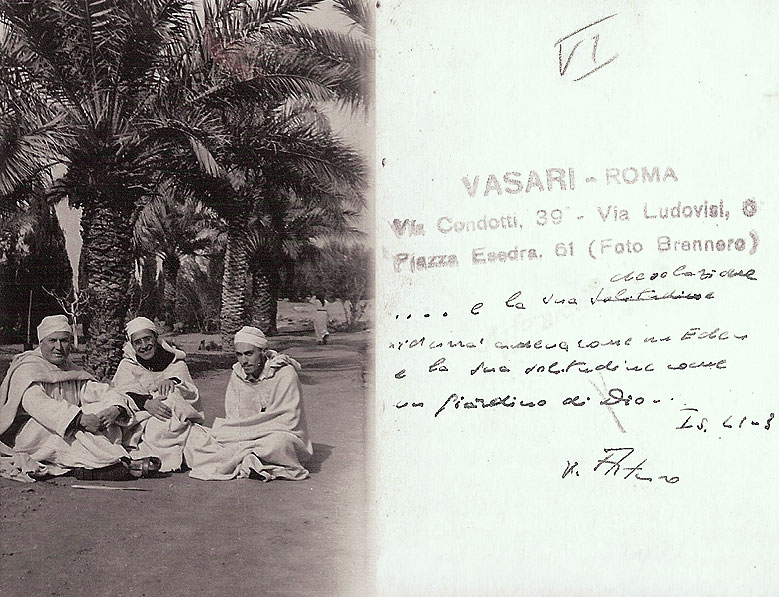 VI
VASARI - ROMA
Via Condotti, 39 - Via Ludovisi, 6
Piazza Esedra, 61 (Foto Brennero)
desolazione
.... e la sua solitudine
ridurrà amena come un Eden
e la sua solitudine come
un giardino di Dio...
Is.
Arturo